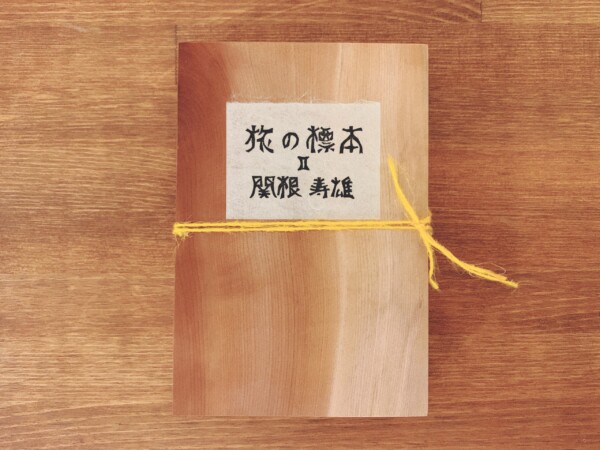 旅の標本
II
関根 寿雄